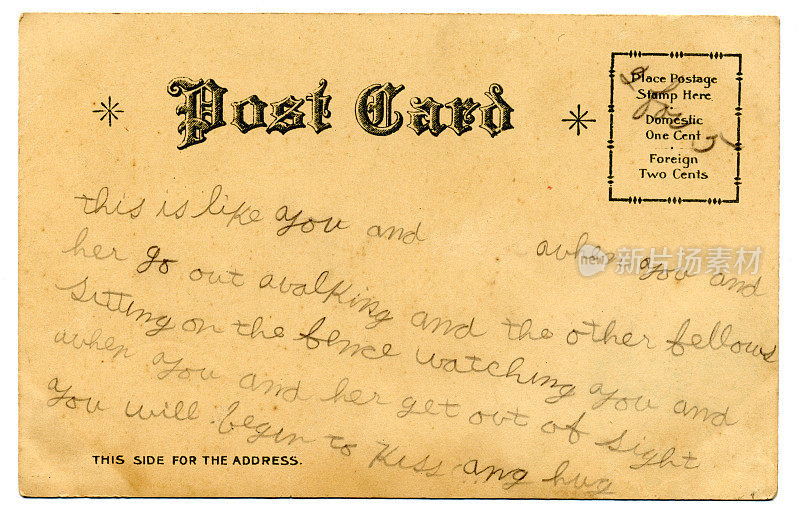 Post Card
Place Postage
Stamp Here
Domestic
One Cent
Foreign
Two Cents
this is like you and when you and
her go out walking and the other fellows
sitting on the fence watching you and
when you and her get out of sight
you will begin to Kiss ang hug
THIS SIDE FOR THE ADDRESS.
new 新片场素材